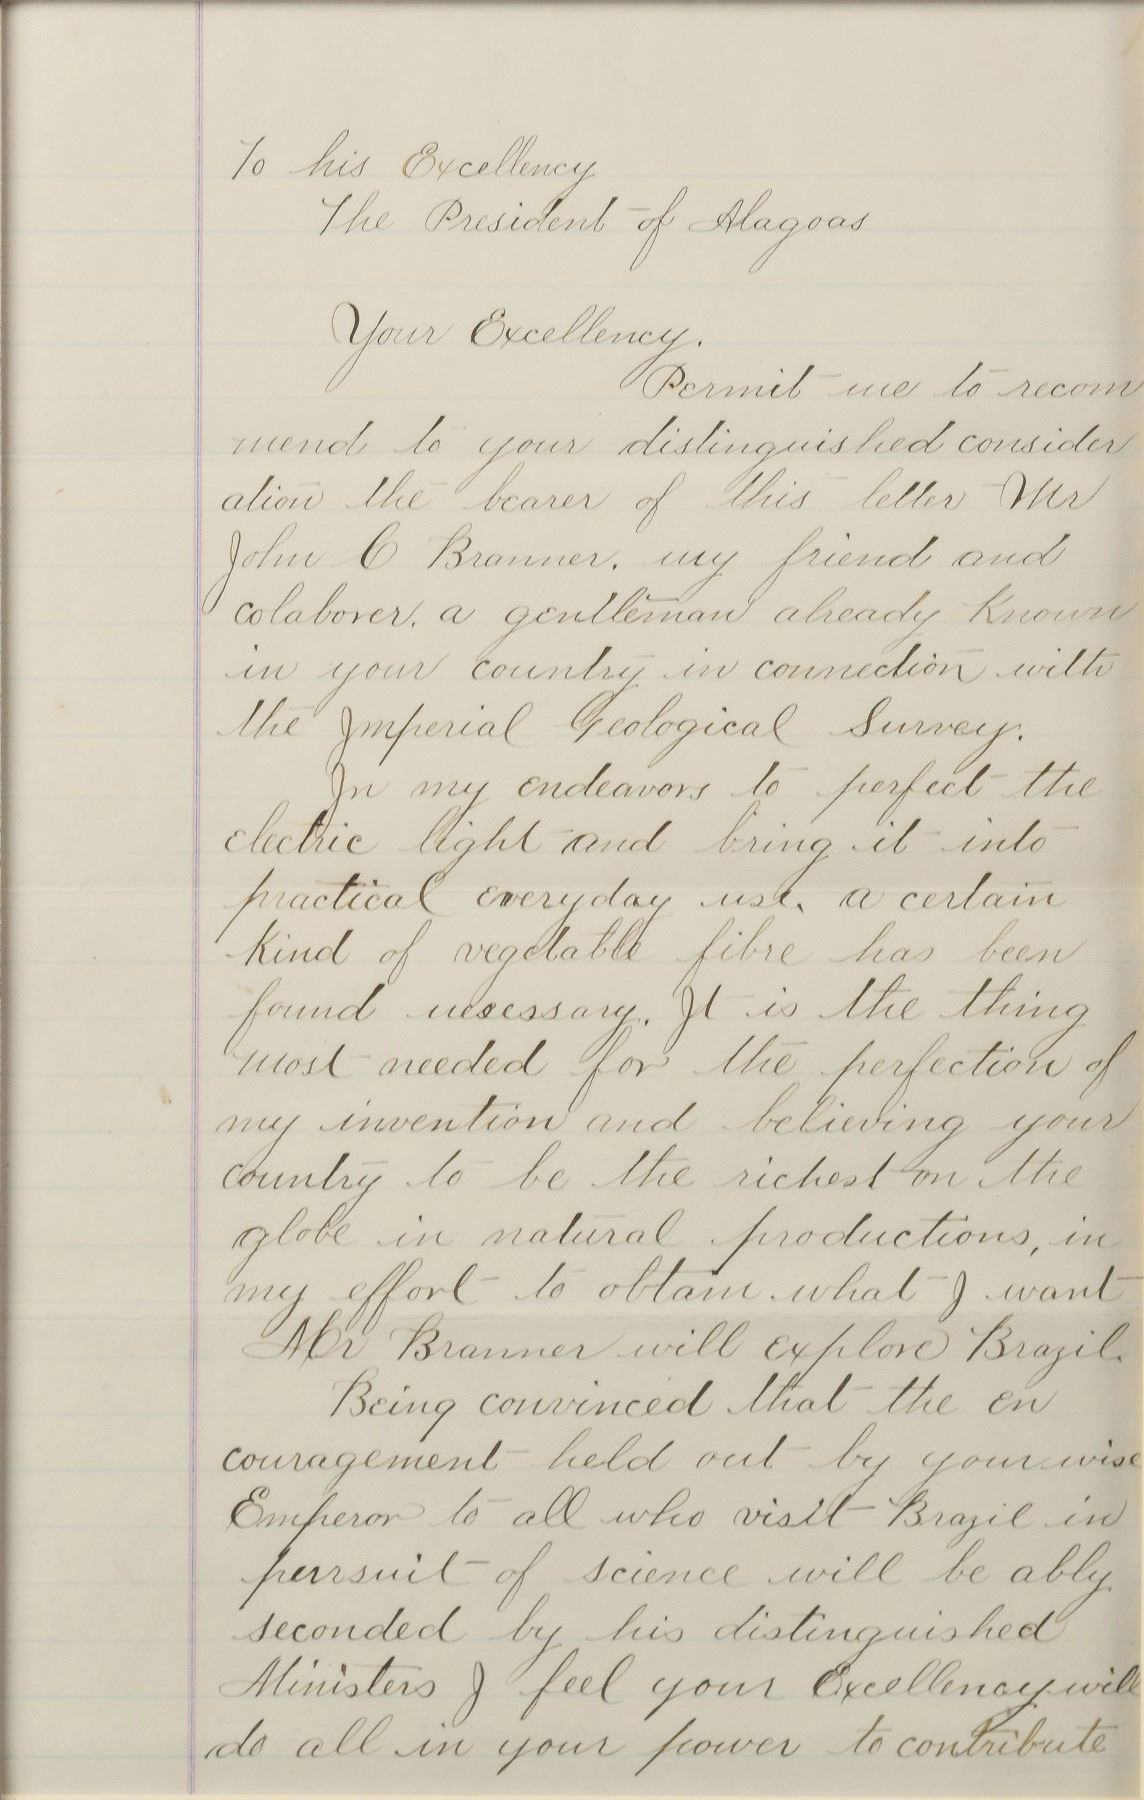 To his Excellency
The President of Alagoas
Your Excellency.
Permit me to recom
mend to your distinguished consider
ation the bearer of this letter Mr
John C Branner. my friend and
colaborer. a gentleman already known
in your country in connection with
the Imperial Geological Survey.
In my endeavors to perfect the
electric light and bring it into
practical everyday use. a certain
kind of vegetable fibre has been
found necessary. It is the thing
most needed for the perfection of
my invention and believing your
country to be the richest on the
globe in natural productions, in
my effort to obtain what I want
Mr Branner will explore Brazil.
Being convinced that the en
couragement held out by your wise
Emperor to all who visit Brazil in
perrsuit of science will be ably
seconded by his distinguished
Ministers I feel your Excellency will
do all in your power to contribute